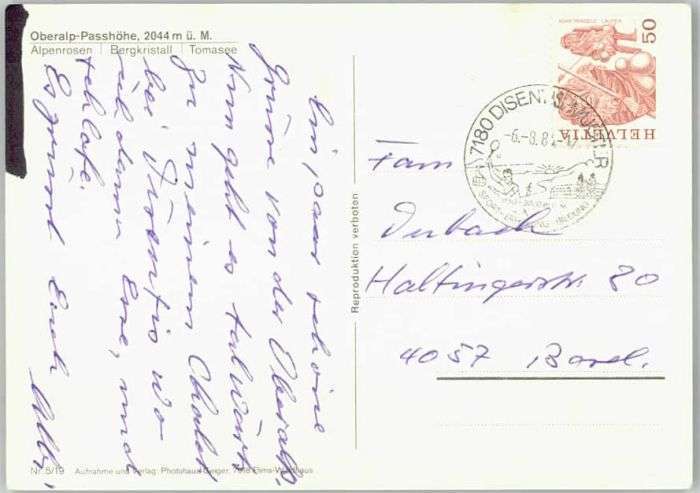 Oberalp-Passhöhe, 2044 m ü. M.
Alpenrosen | Bergkristall | Tomasee
Ein paar schöne
Grüsse von der Oberalp.
Nun geht es talwärts
zu meinem Chalet
bei Disentis wo
ich dann Esse, und
schlafe.
Es grüsst Euch
Reproduktion verboten
HELVETIA
50
7180 DISENTIS/MUSTÉR
-6.-8.8
Fam
Durbach
Haltingerstr. 80
4057 Basel.
Nr. 5/19 Aufnahme und Verlag: Photohaus Geiger, 7018 Flims-Waldhaus